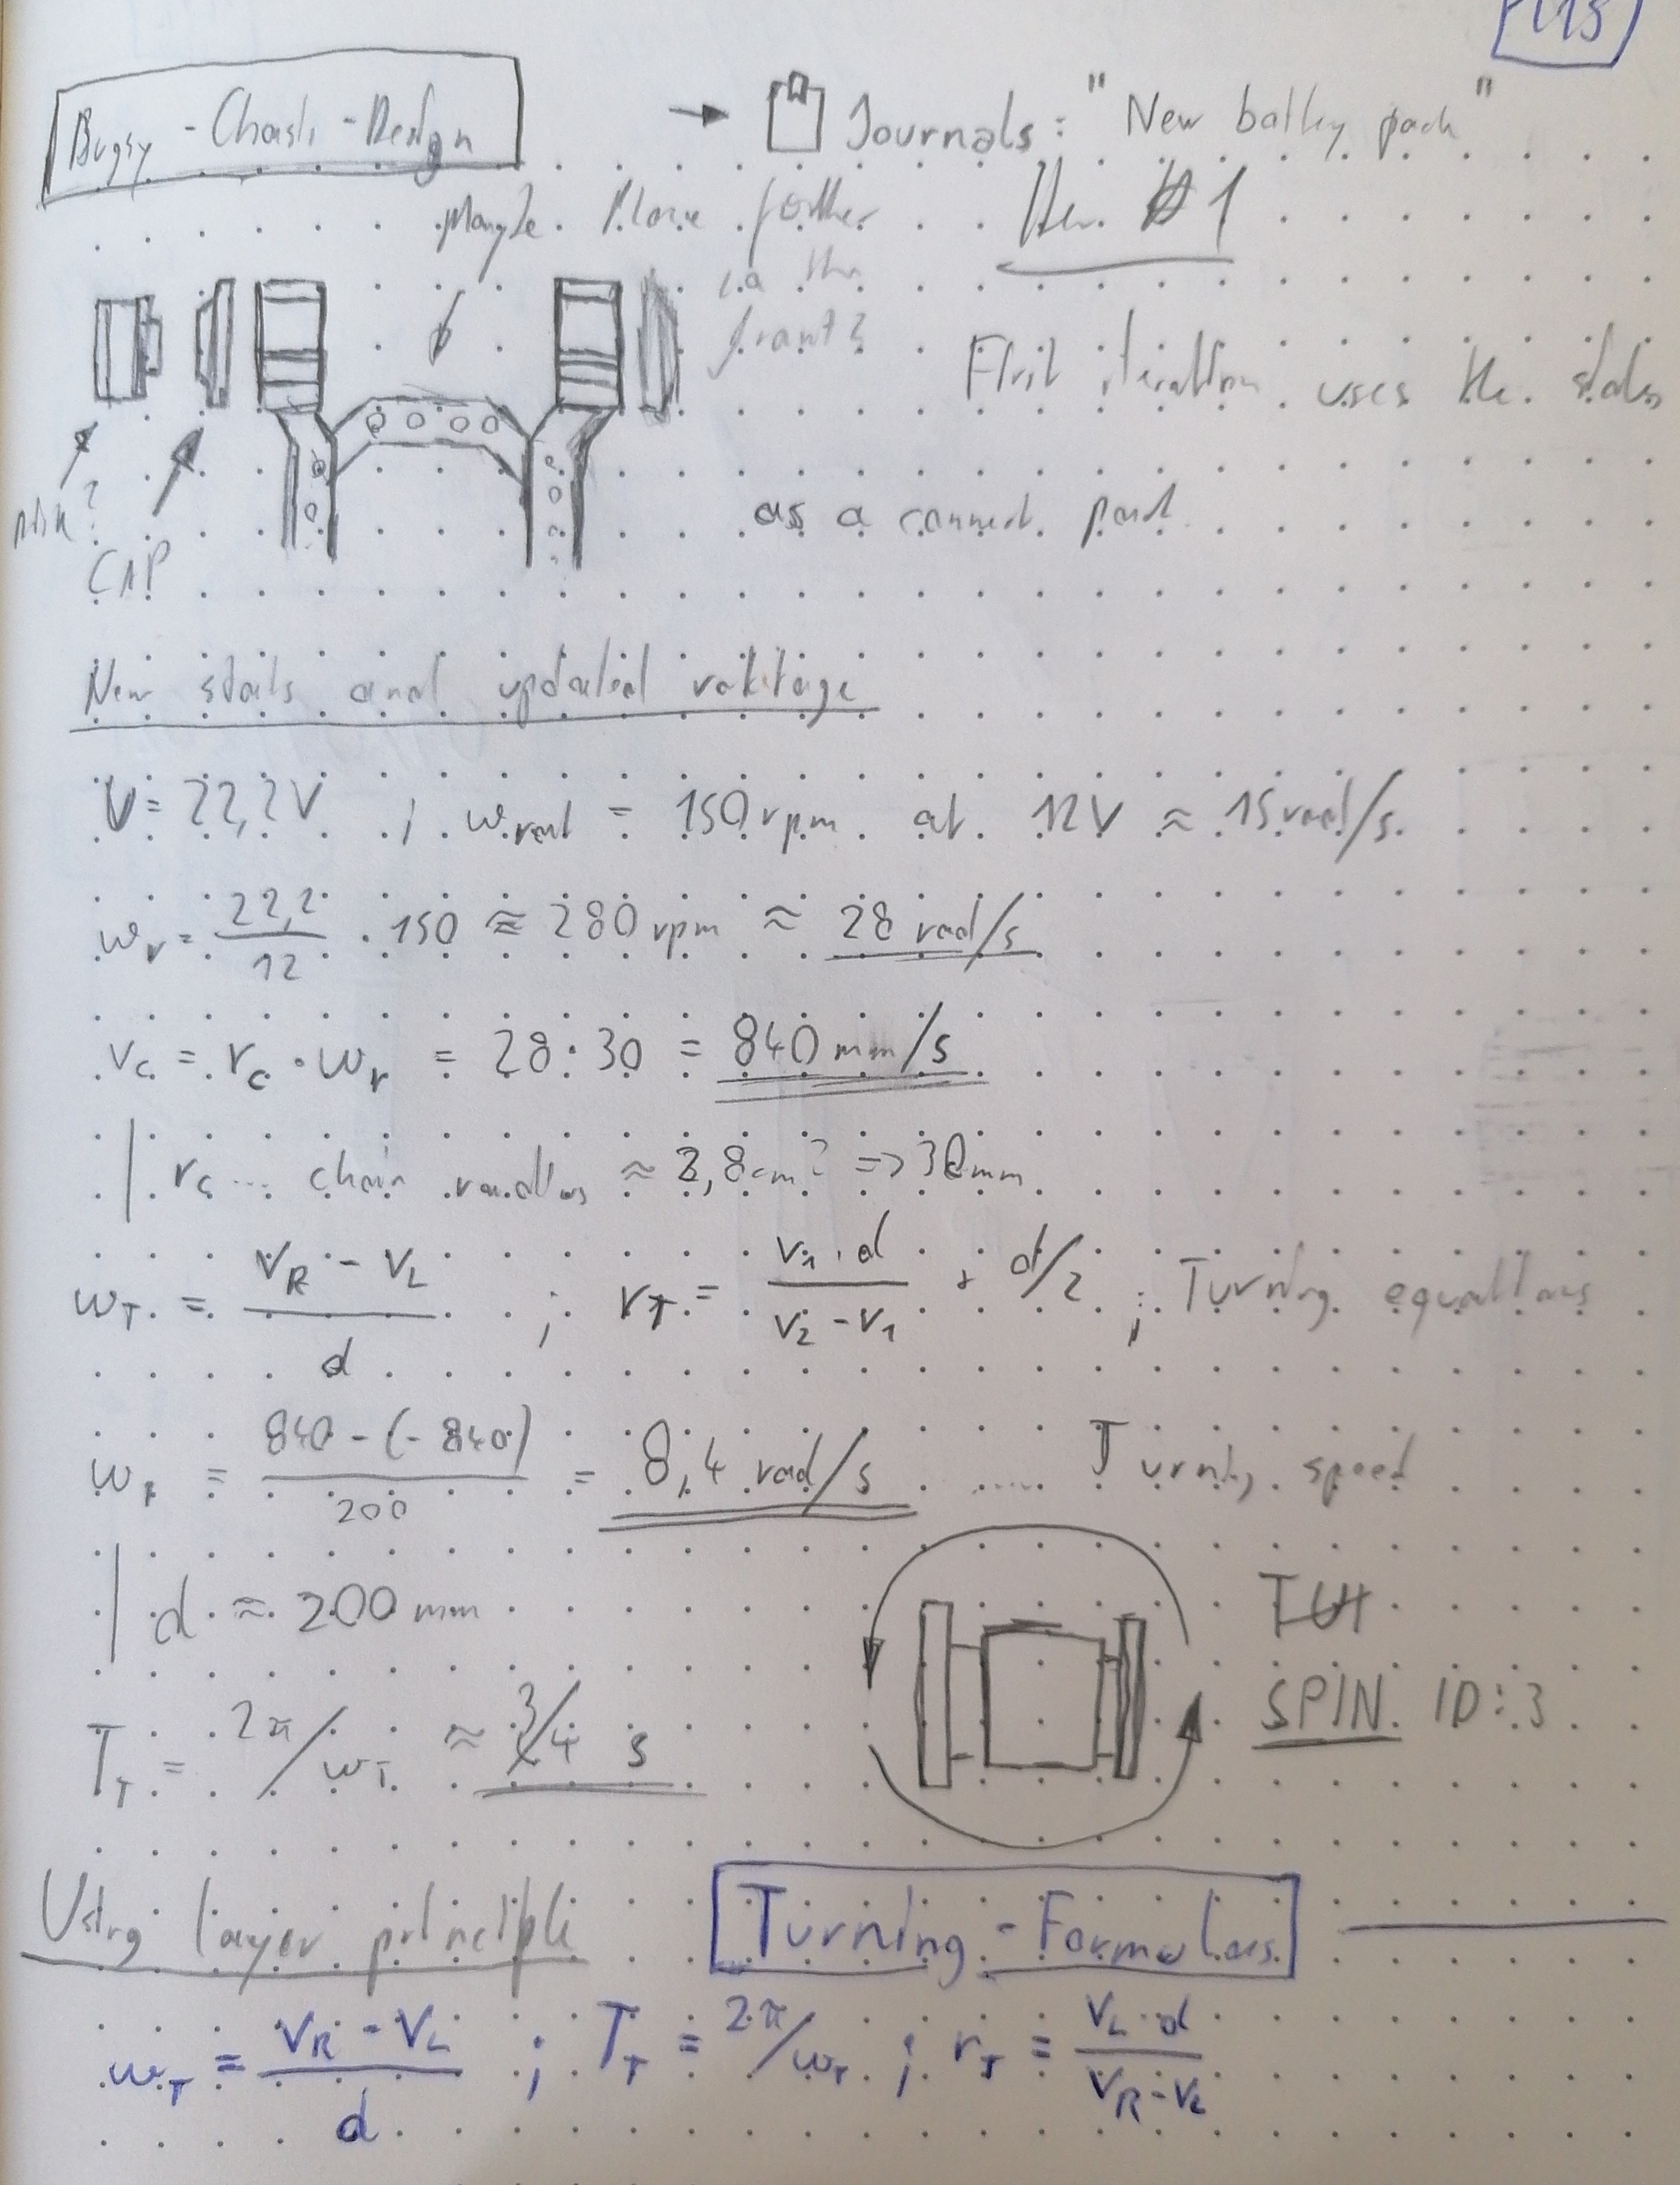 Bugsy - Chasis - Design
→ Journals: "New battery pack"
Maybe Move further
in the
front?
Iter. #1
First iteration uses the
as a connect. part
CAP
New stats and updated voltage
V = 22,2V ; ωreal = 150rpm at 12V ≈ 15rad/s
ωr = 22,2/12 · 150 ≈ 280rpm ≈ 28 rad/s
vc = rc · ωr = 28 · 30 = 840 mm/s
rc ... chain radius ≈ 2,8cm? => 30mm
ωT = (VR - VL)/d ; rT = (v1 · d)/(v2 - v1) + d/2 ; Turning equations
ωT = (840 - (-840))/200 = 8,4 rad/s ..... Turning speed
d ≈ 200 mm
TT = 2π/ωT ≈ 3/4 s
SPIN ID: 3
Using layer principle
Turning - Formulas
ωT = (VR - VL)/d ; TT = 2π/ωT ; rT = (VL · d)/(VR - VL)